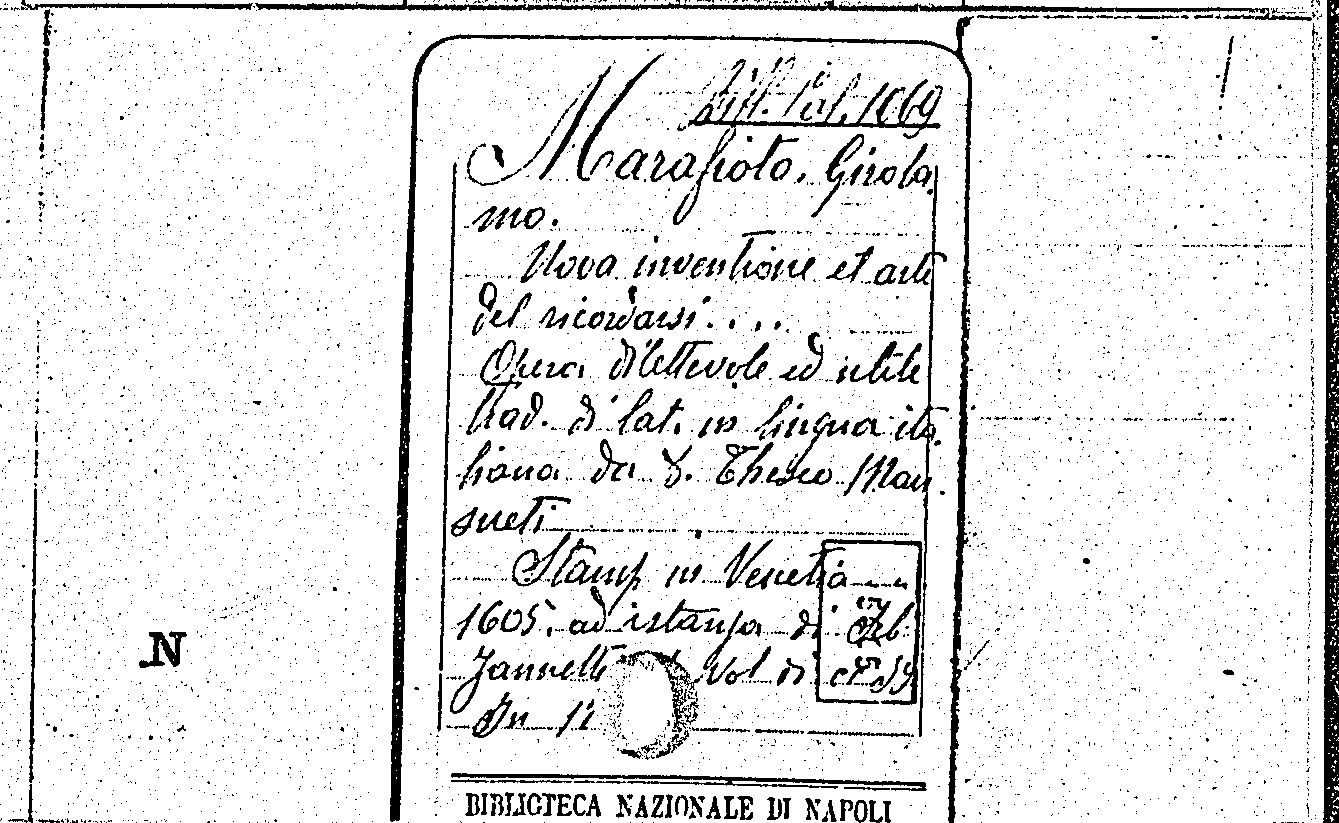 Bibl. Pal. 1069
Marafioto, Girola.
mo.
Nova inventione et arte
del ricordarsi....
Opera dilettevole ed utile
trad. di lat. in lingua ita.
liana da D. Theseo Man.
sueti
Stamp in Venetia
1605. ad istanza di
Jannetti vol di
In
N
BIBLIOTECA NAZIONALE DI NAPOLI